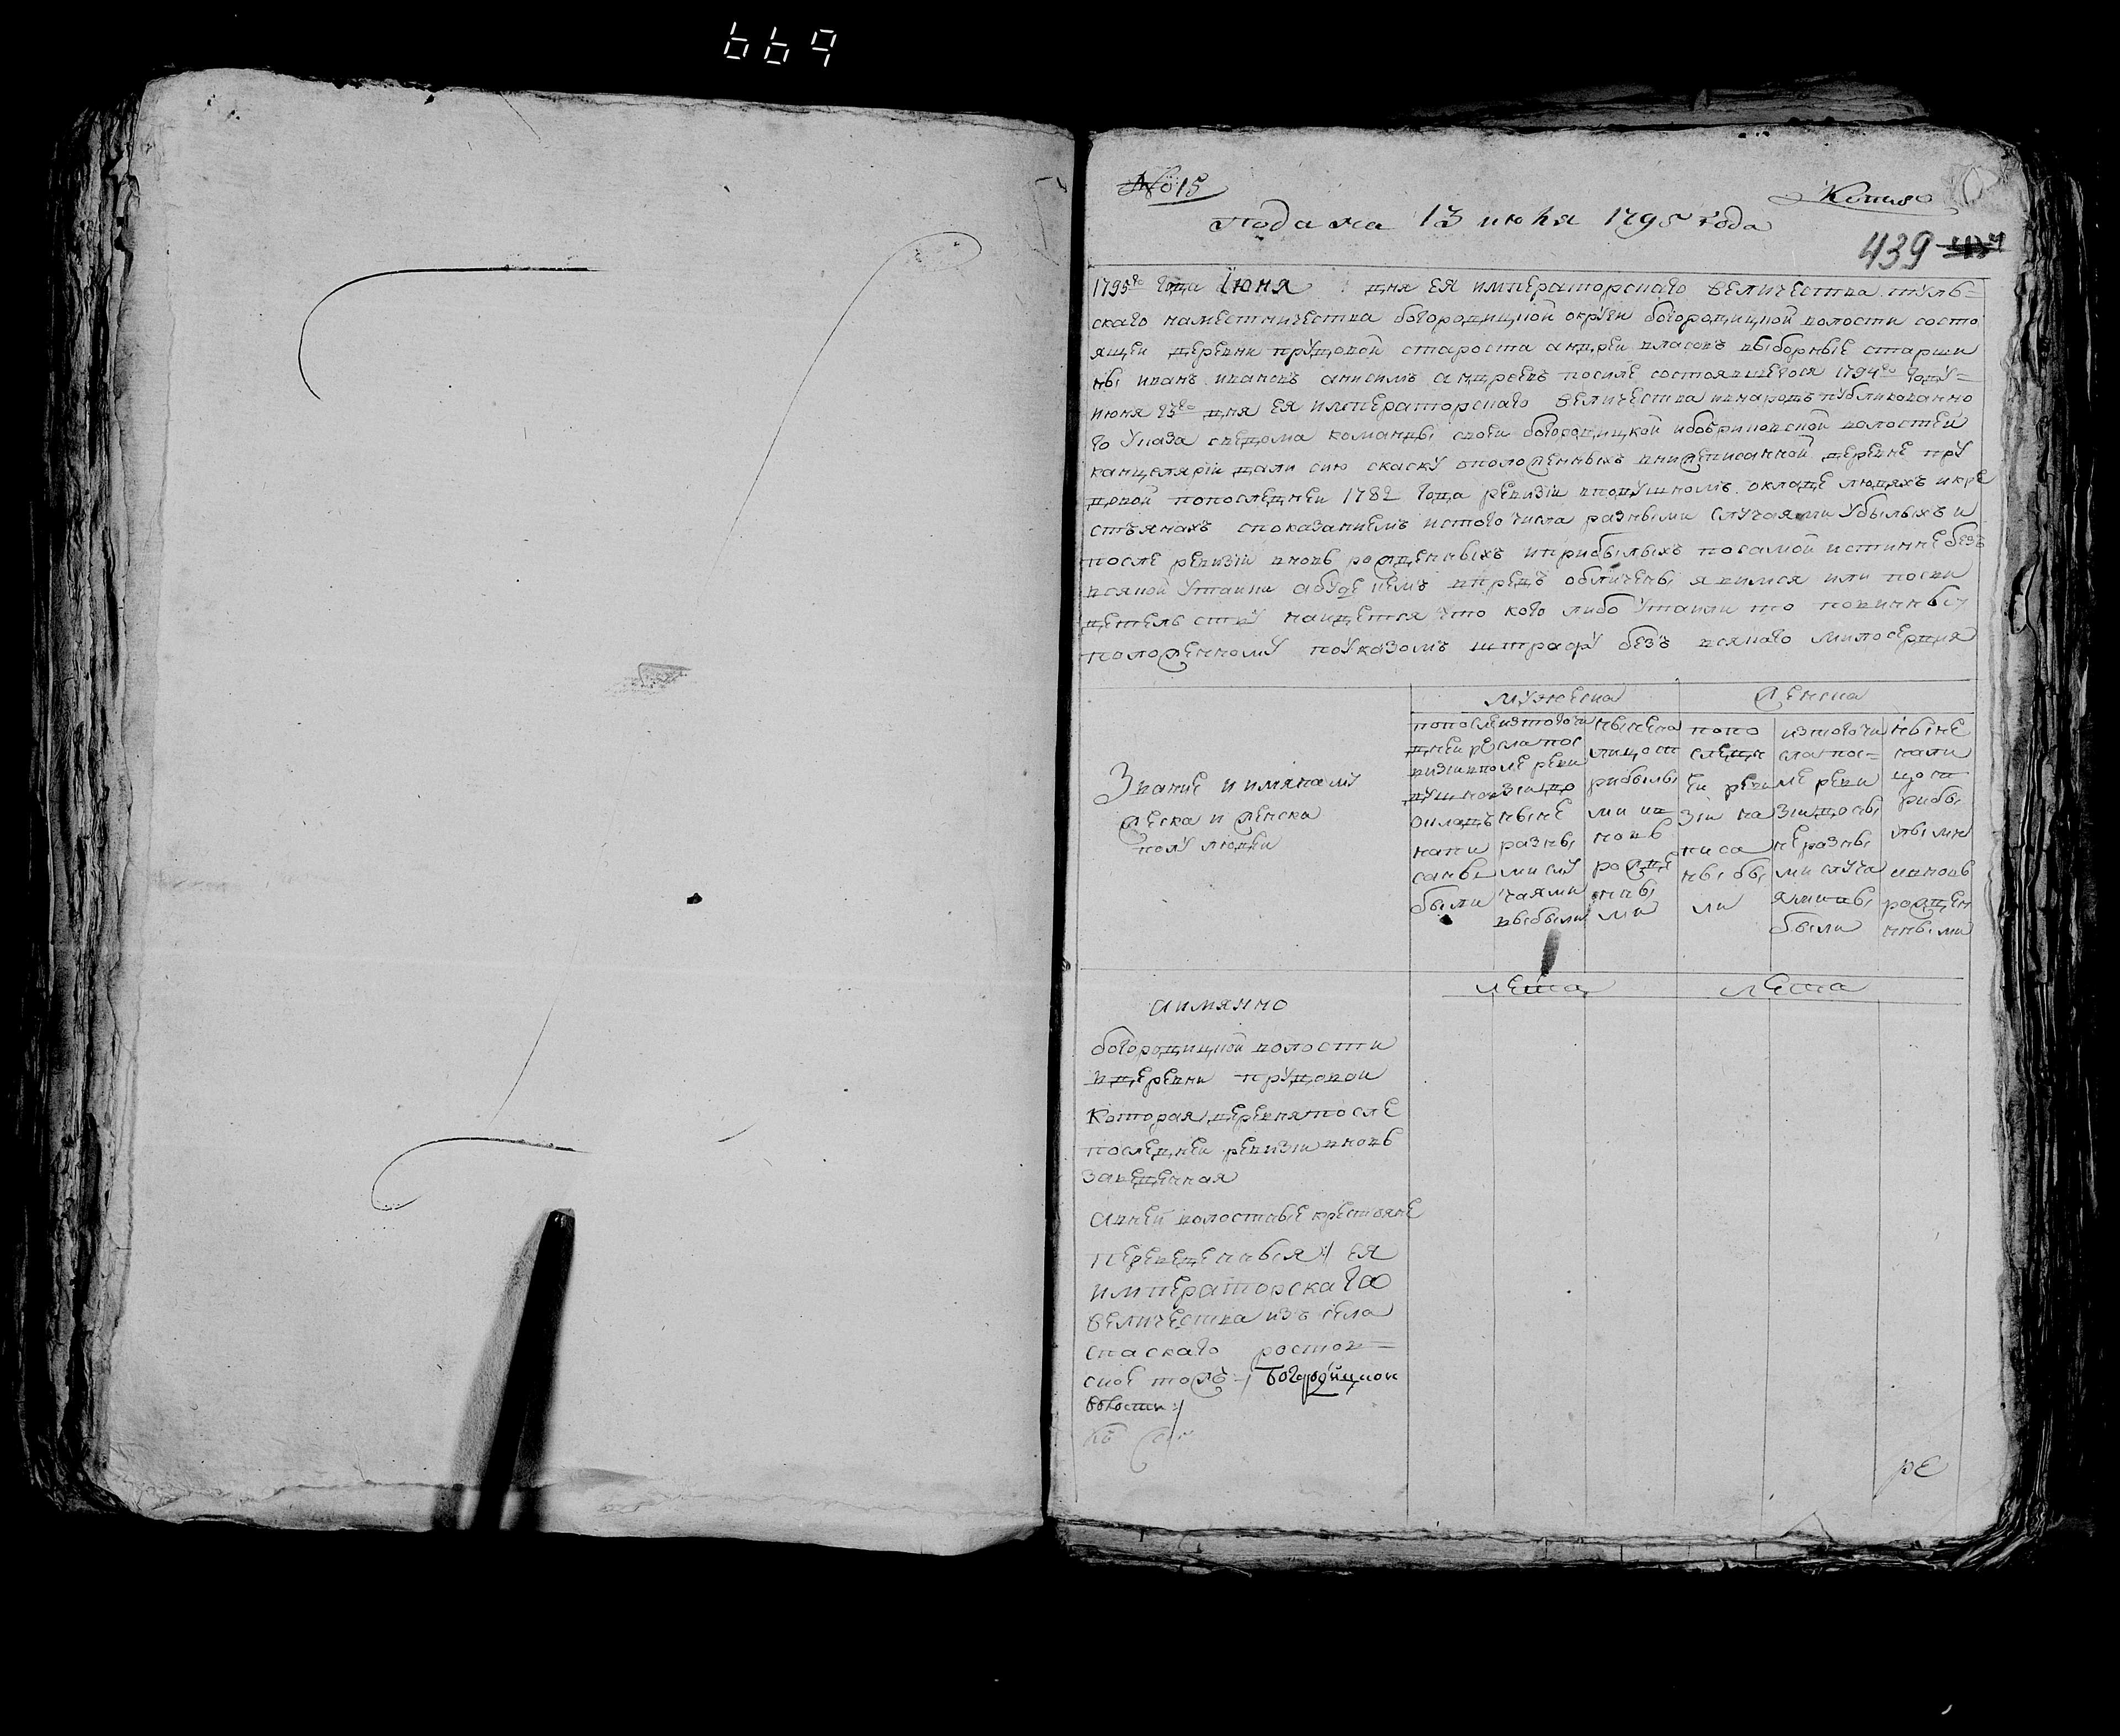 669
№ 15
Копия
подана 13 июня 1795 года
439
1795го года июня дня ея императорскаго величества туль=
скаго наместничества богородицкой округи богородицкой волости состо
ящей деревни прудовой староста андрей власовъ выборные старши
ны иванъ ивановъ анисимъ андреевъ посиле состоявшегося 1794го году=
июня 23го дня ея императорскаго величества инародъ публикованно
го указа сведома команды своей богородицкой ибобриковской волостей
канцелярии дали сию скаску оположенныхъ внижеписанной деревне пру
довой попоследней 1782 года ревизии вподушномъ окладе людяхъ икре
стьянахъ споказаниемъ истого числа разными случаями убылыхъ и
после ревизии вновь рожденныхъ иприбылыхъ посамой истинне безъ
всякой утайки абуде чемъ впредъ обличены явимся или посви
детельству найдется что кого либо утаили то повинны
положенному поуказомъ штрафу безъ всякаго милосердия
мужеска
женска
Звание и имяна му
жеска и женска
полу людей
попосле
дней ре
визии впо
душном
окладъ
напи
саны
были
изтогочи
сла пос
ле реви
зии до
ныне
разны
ми слу
чаями
выбыли
ныне на
лицо съ
прибылы
ми ив
новь
рожде
нны
ми
попо
следн
ей реви
зии на
писа
ны бы
ли
изтогочи
сла пос=
ле реви
зии доны
не разны
ми случа
ями вы
были
ныне
нали
цо съ
прибы
лыми
ивновь
рожден
ными
лета
лета
аимянно
богородицкой волости
вдеревни прудовой
Которая деревня после
последней ревизии вновь
заведенная
Авней волостные крестьяне
переведенныя :/ ея
императорскаго
величества изъ села
спаскаго ростов=
скои Богородицкой
волости :/
ре